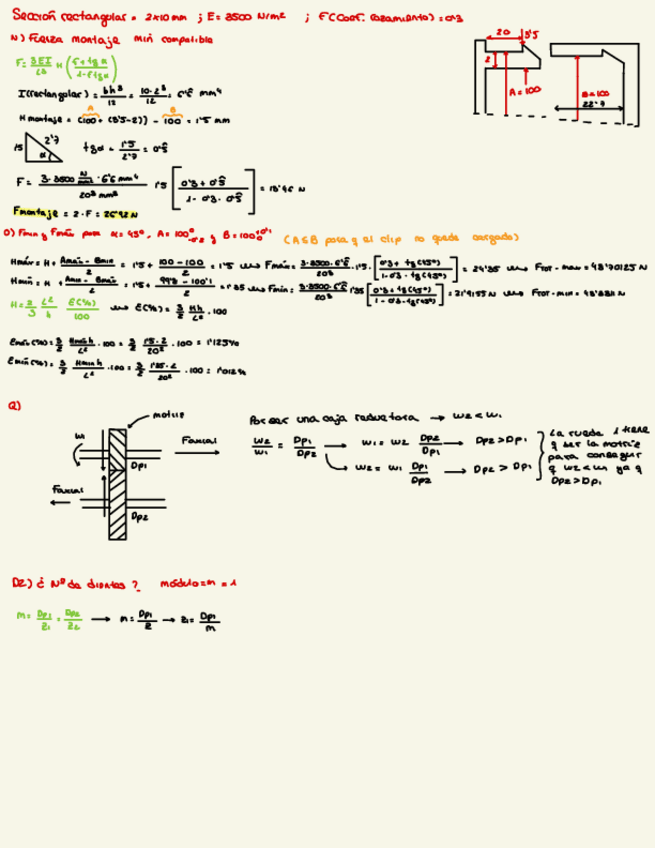 Sección rectangular = 2x10 mm ; E = 3500 N/m² ; f (coef. rozamiento) = 0'3
N) Fuerza montaje min compatible
F = 3EI/L³ H (f + tg α / 1 - f tg α)
I (rectangular) = bh³/12 = 10·2³/12 = 6'6̂ mm⁴
A B
H montaje = (100 + (3'5-2)) - 100 = 1'5 mm
1'5 2'7 α tg α = 1'5/2'7 = 0'5̂
F = 3·3500 N/mm² · 6'6 mm⁴ / 20³ mm³ 1'5 [0'3 + 0'5̂ / 1 - 0'3 · 0'5̂] = 13'46 N
Fmontaje = 2·F = 26'92 N
20 3'5
2
A = 100 B = 100
22'7
O) Fmin y Fmáx para α = 45°, A = 100 y B = 100 (A≤B para q el clip no quede cargado)
Hmáx = H + Amáx - Bmin / 2 = 1'5 + 100 - 100 / 2 = 1'5 Fmáx = 3·3500·6'6̂ / 20³ · 1'5 · [0'3 + tg(45°) / 1 - 0'3 · tg(45°)] = 24'35 Ftot-max = 48'70125 N
Hmin = H + Amin - Bmáx / 2 = 1'5 + 99'8 - 100'1 / 2 = 1'35 Fmin = 3·3500·6'6̂ / 20³ 1'35 [0'3 + tg(45°) / 1 - 0'3 · tg(45°)] = 21'9155 N Ftot-min = 43'831 N
H = 2/3 L²/h E(%)/100 E(%) = 3/2 Hh/L² · 100
Emáx(%) = 3/2 Hmáx h / L² · 100 = 3/2 1'5·2 / 20² · 100 = 1'125%
Emin(%) = 3/2 Hmin h / L² · 100 = 3/2 1'35·2 / 20² · 100 = 1'012%
Q)
motriz
W₁
Faxial
Dp1
Faxial
Dp2
Por ser una caja reductora → W2 < W1
W2/W1 = Dp1/Dp2 → W1 = W2 Dp2/Dp1 → Dp2 > Dp1
W2 = W1 Dp1/Dp2 → Dp2 > Dp1
La rueda 1 tiene
q ser la motriz
para conseguir
q W2 < W1 ya q
Dp2 > Dp1
D2) ¿ Nº de dientes ? módulo = m = 1
m = Dp1/Z1 = Dp2/Z2 → m = Dp1/Z → Z1 = Dp1/m